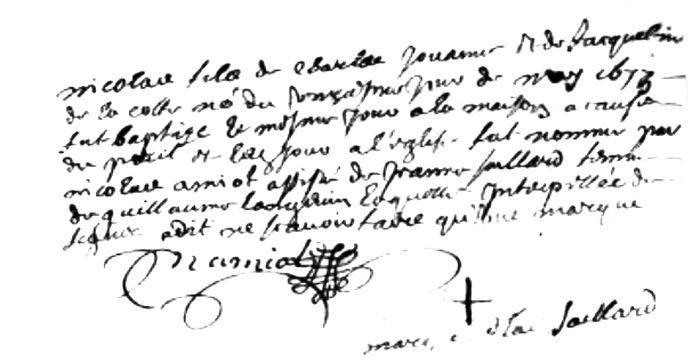 nicolas fils de charles jouanne et de Jacqueline
de la colle né du onziesme jour de may 1673
fut baptize le mesme jour a la maison a cause
du peril et le jour a l'eglise fut nomme par
nicolas amiot assisté de jeanne saillard femme
de guillaume laquelle Interpellée de
signer a dit ne scavoir faire qu'une marque
N amiot
saillard